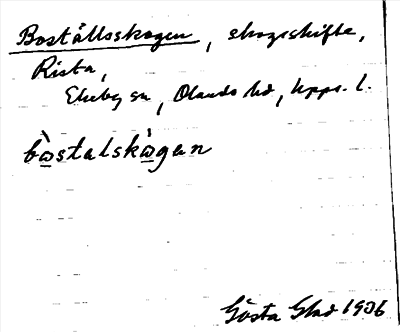 Boställsskogen, skogsskifte,
Rista,
Ekeby sn, Olands hd, Upps. l.
bòstalskògen
Gösta Glad 1906